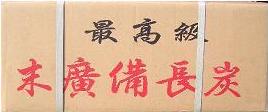 最高級
末廣備長炭